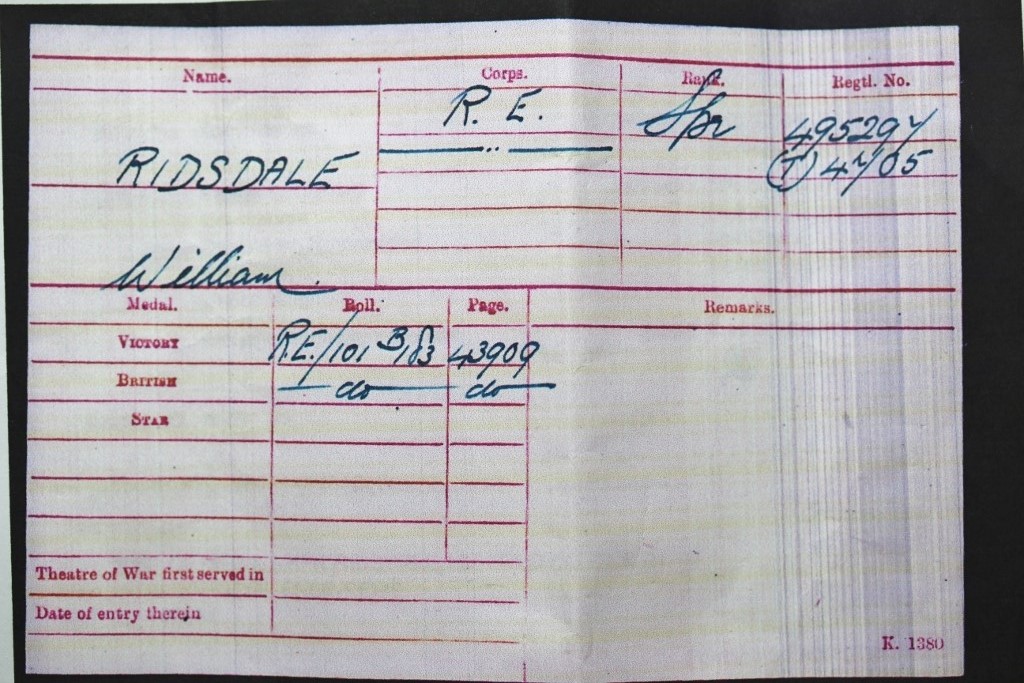 Name. Corps. Rank. Regtl. No.
RIDSDALE
William.
R. E.
Spr
495297
— " —
(T) 4705
Medal. Roll. Page. Remarks.
VICTORY R.E./101 B183 43909
BRITISH do do
STAR
Theatre of War first served in
Date of entry therein
K. 1380